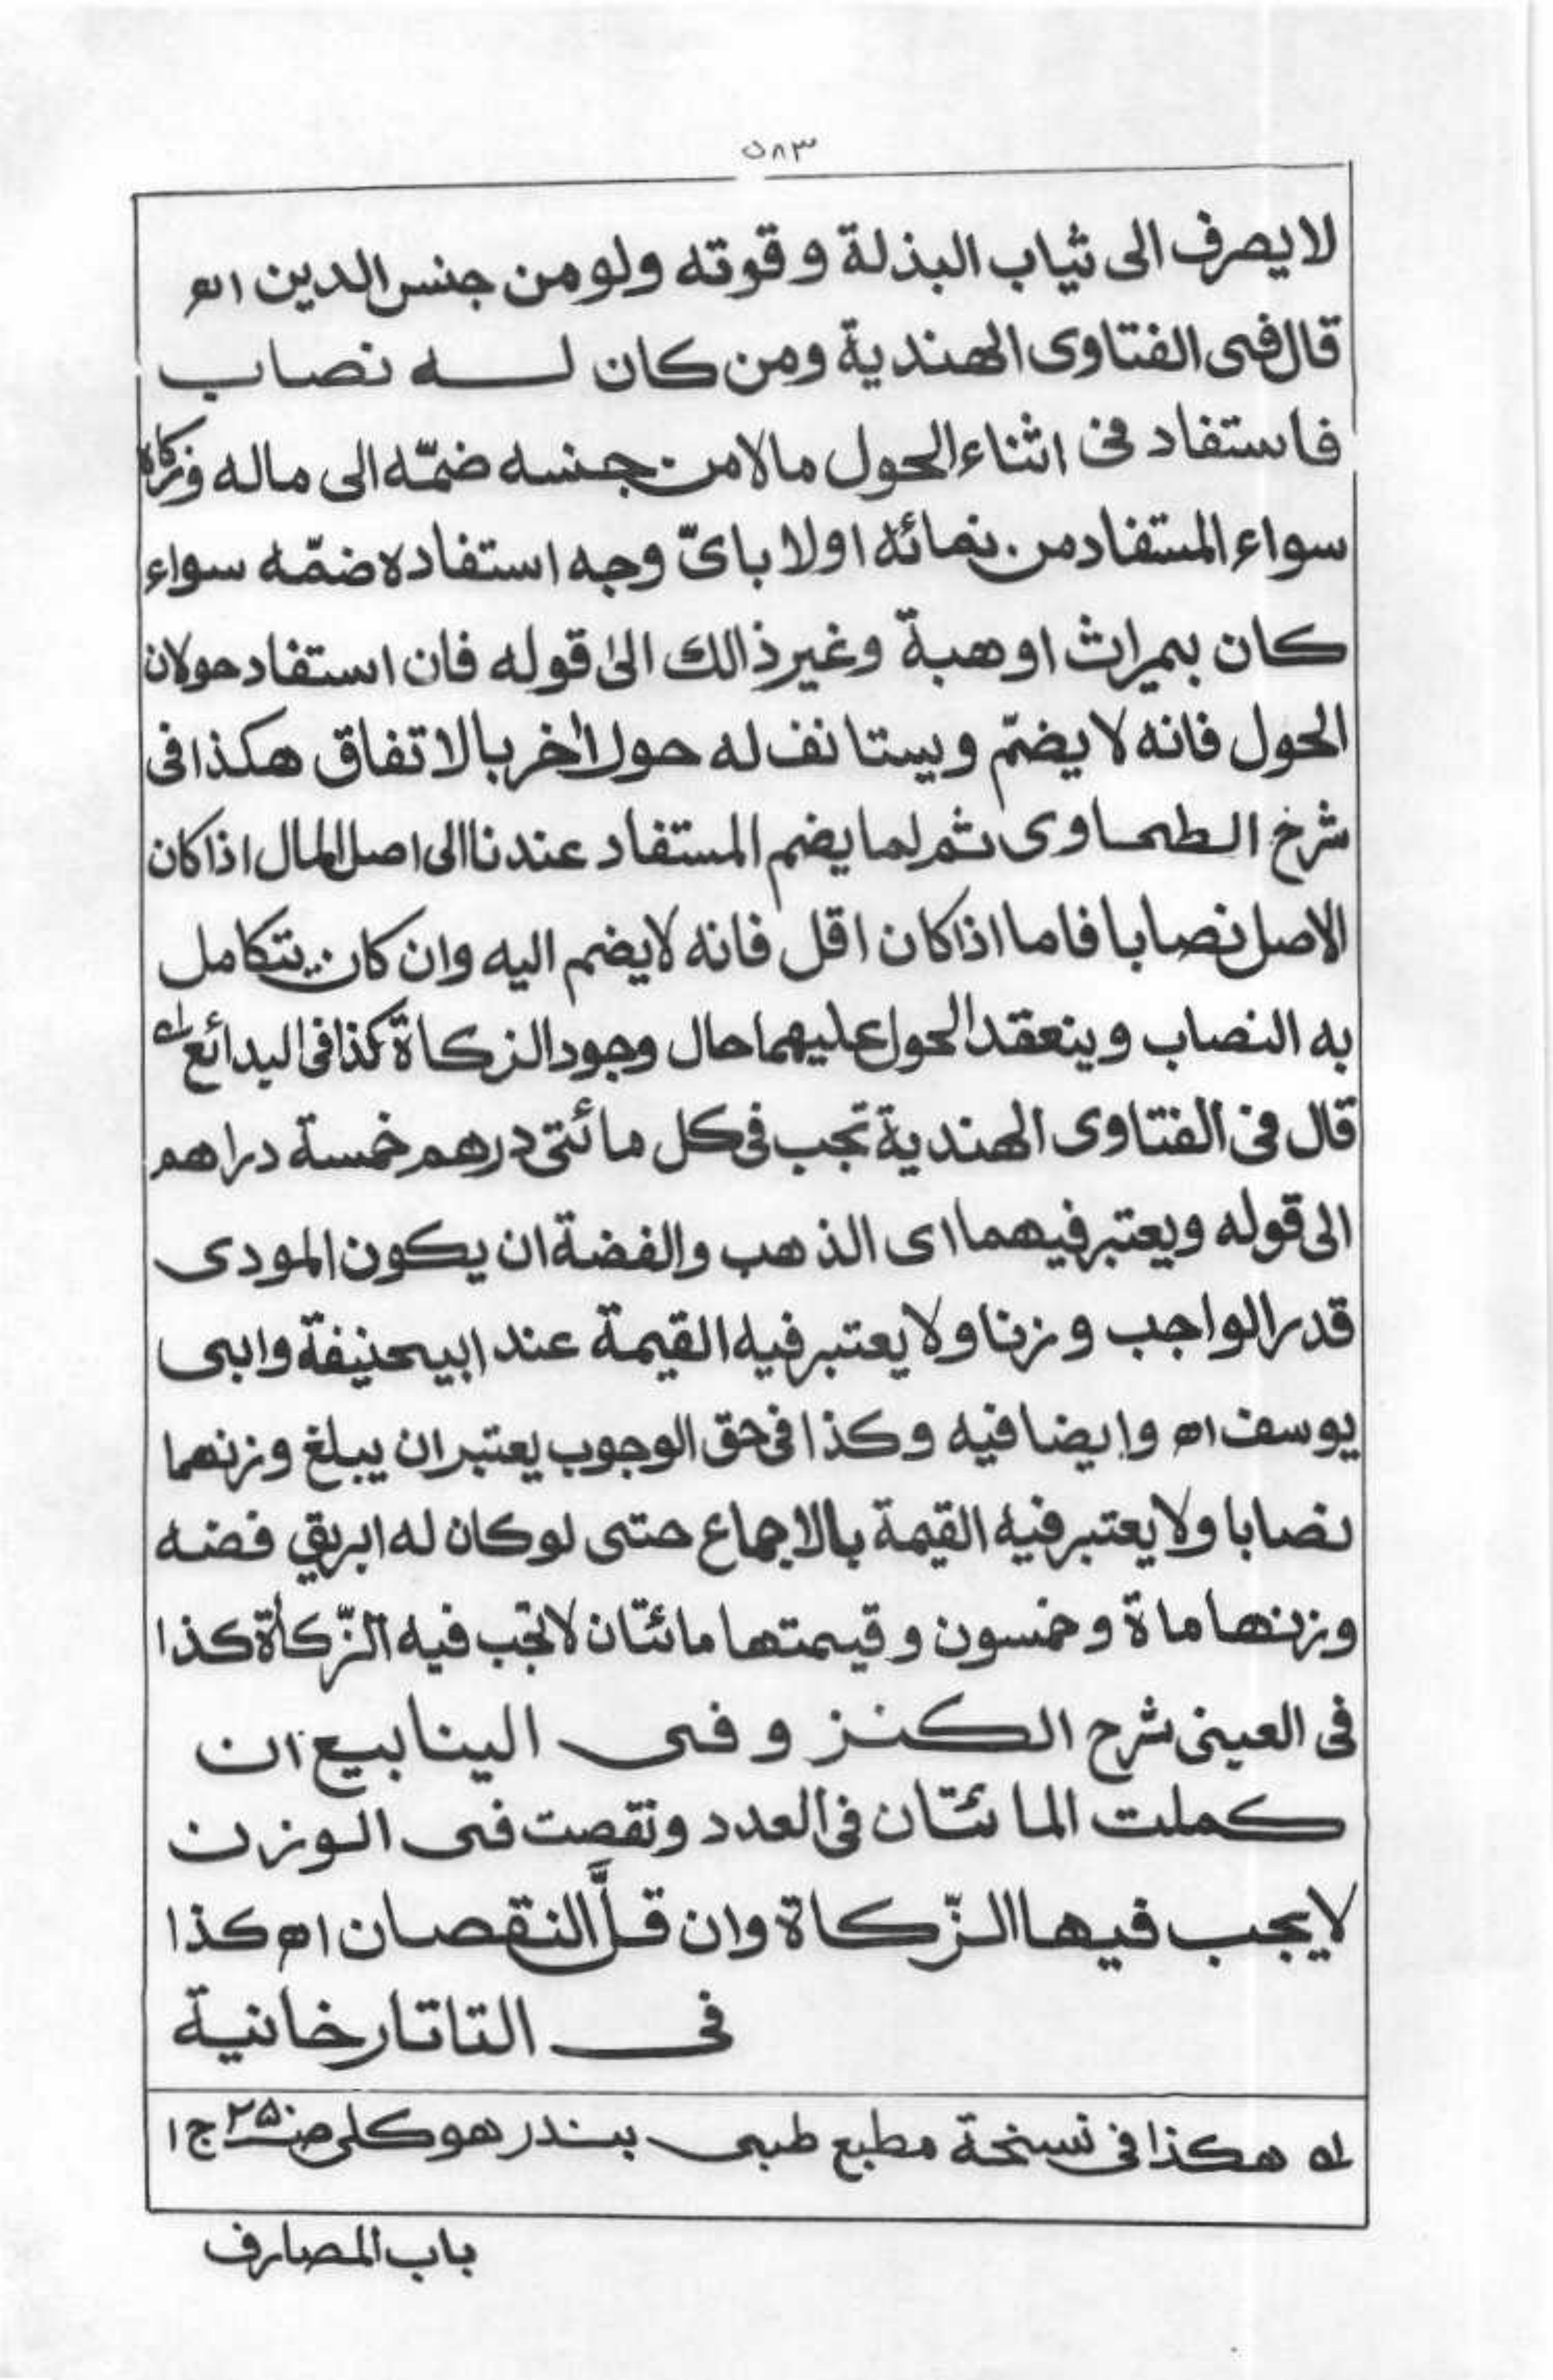 ٥٨٣
لا يصرف الى ثياب البذلة و قوته ولو من جنس الدين اھ
قال فى الفتاوى الهندية ومن كان له نصاب
فاستفاد فى اثناء الحول مالا من جنسه ضمّه الى ماله وزكاه
سواء المستفاد من نمائه اولا باىّ وجه استفاده ضمّه سواء
كان بميراث او هبة وغير ذالك الىٰ قوله فان استفاد حولان
الحول فانه لا يضمّ ويستانف له حولا اٰخر بالاتفاق هكذا فى
شرخ الطحاوى ثم لما يضم المستفاد عندنا الى اصل المال اذا كان
الاصل نصابا فاما اذا كان اقل فانه لا يضم اليه وان كان يتكامل
به النصاب وينعقد الحول عليهما حال وجود الزكاة كذا فى البدائع لہ
قال فى الفتاوى الهندية تجب فى كل مائتى درهم خمسة دراهم
الى قوله ويعتبر فيهما اى الذهب والفضة ان يكون المودى
قدر الواجب وزنا ولا يعتبر فيه القيمة عند ابيحنيفة وابى
يوسف اھ وايضا فيه وكذا فى حق الوجوب يعتبر ان يبلغ وزنهما
نصابا ولا يعتبر فيه القيمة بالاجماع حتى لو كان له ابريق فضه
وزنها ماة وخمسون وقيمتها مائتان لا تجب فيه الزّكاة كذا
فى العينى شرح الكنز وفى الينابيع ان
كملت المائتان فى العدد ونقصت فى الوزن
لا يجب فيها الزّكاة وان قلَّ النقصان اھ كذا
فى التاتارخانية
لہ هكذا فى نسخة مطبع طبى بيندر هوكلى صـ٢٥٠ ج ١
باب المصارف